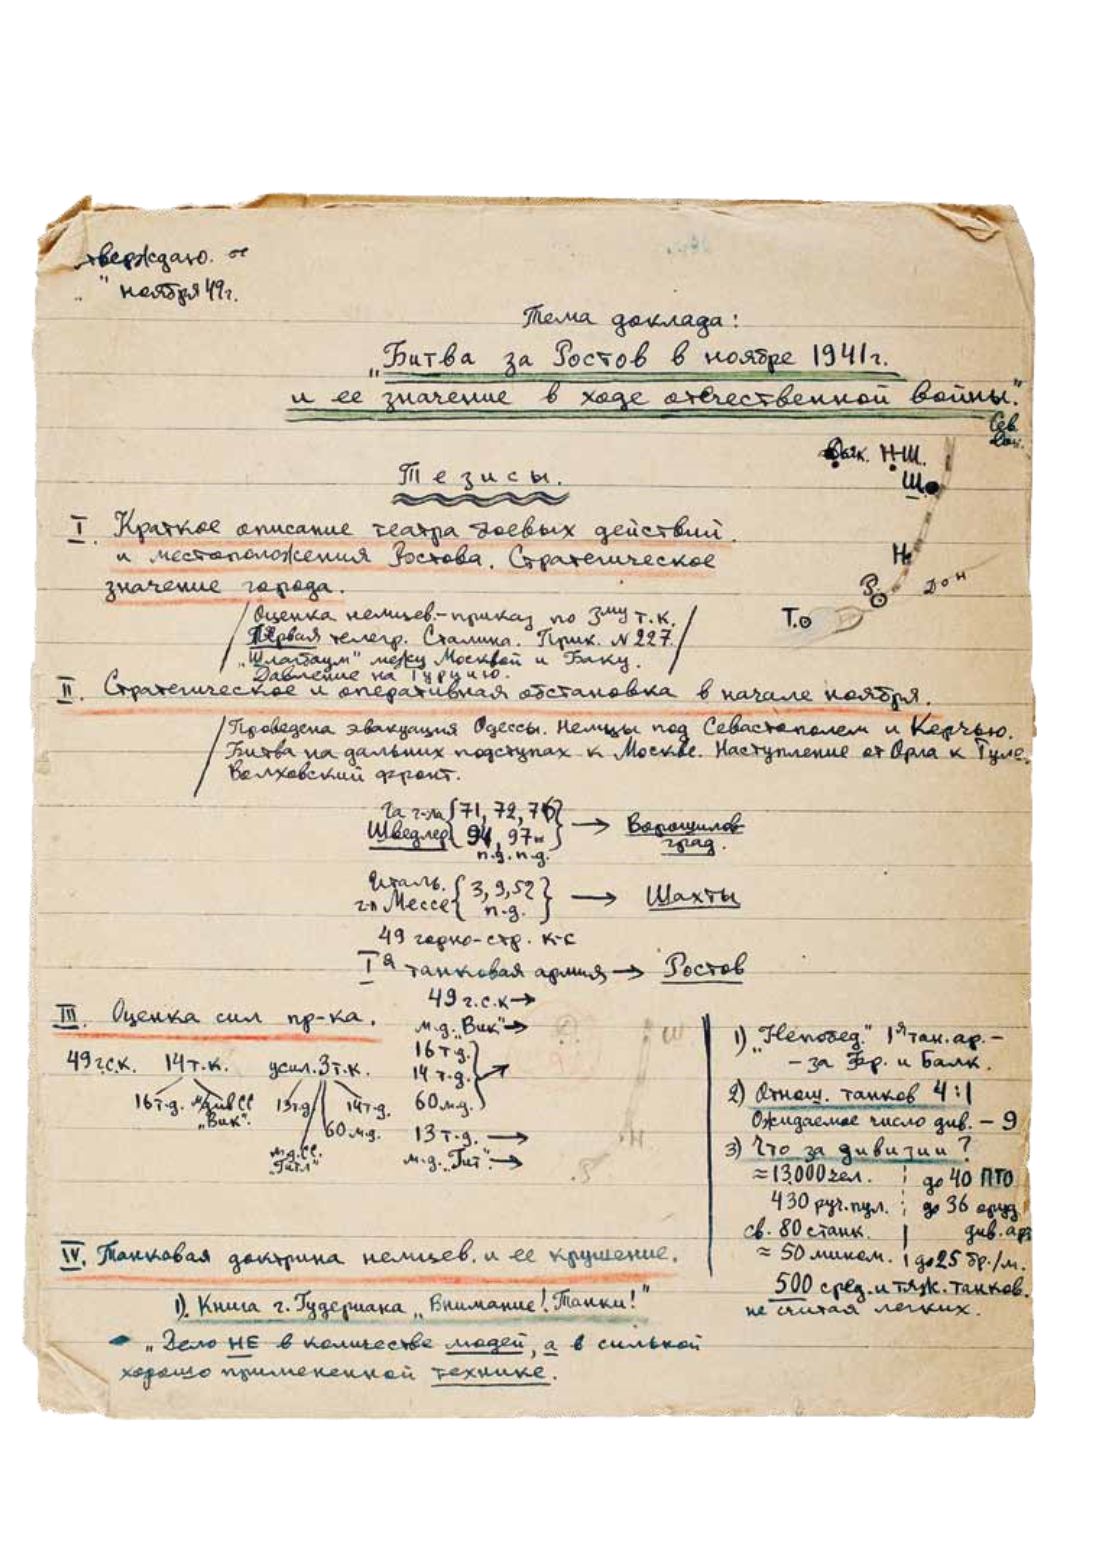 тверждаю.
" ноября 49г.
Тема доклада:
„Битва за Ростов в ноябре 1941г.
и ее значение в ходе отечественной войны."
Сев.
Дон.
Н.Ш.
Ш.
Тезисы.
I. Краткое описание театра боевых действий
и местоположения Ростова. Стратегическое
значение города.
Н
Р.
Дон
Т.
/Оценка немцев-приказ по 3му т.к./
Первая телегр. Сталина. Прик. N 227.
„Шлагбаум" между Москвой и Баку.
Давление на Турцию.
II. Стратегическое и оперативная обстановка в начале ноября.
/Проведена эвакуация Одессы. Немцы под Севастополем и Керчью.
Битва на дальних подступах к Москве. Наступление от Орла к Туле.
Волховский фронт.
Га г-ла {71, 72, 76} → Ворошилов-
Шведлер {94, 97 град.
п.д. п.д.
Италь. {3, 9, 52} → Шахты
г-л Мессе п.д.
49 горно-стр. к-с
Iя танковая армия → Ростов
49 г.с.к →
III. Оценка сил пр-ка.
м.д. „Вик" →
16 т.д.
14 т.д.
60 м.д.
13 т.д. →
м.д. „Гит." →
49 г.с.к. 14 т.к. усил. 3 т.к.
16 т.д. див СС 13 т.д. 14 т.д.
„Вик". 60 м.д.
м.д. СС.
„Гитл"
1) „Непобед." 1я тан. ар. –
– за Фр. и Балк.
2) Отнош. танков 4:1
Ожидаемое число див. – 9
3) Что за дивизии?
≈ 13.000 чел. до 40 ПТО
430 руч. пул. до 36 оруд.
св. 80 станк. див. ар
≈ 50 мином. до 25 бр./м.
500 сред. и тяж. танков.
не считая легких.
IV. Танковая доктрина немцев. и ее крушение.
1). Книга г. Гудериана „Внимание! Танки!"
– „Дело НЕ в количестве людей, а в сильной
хорошо примененной технике.